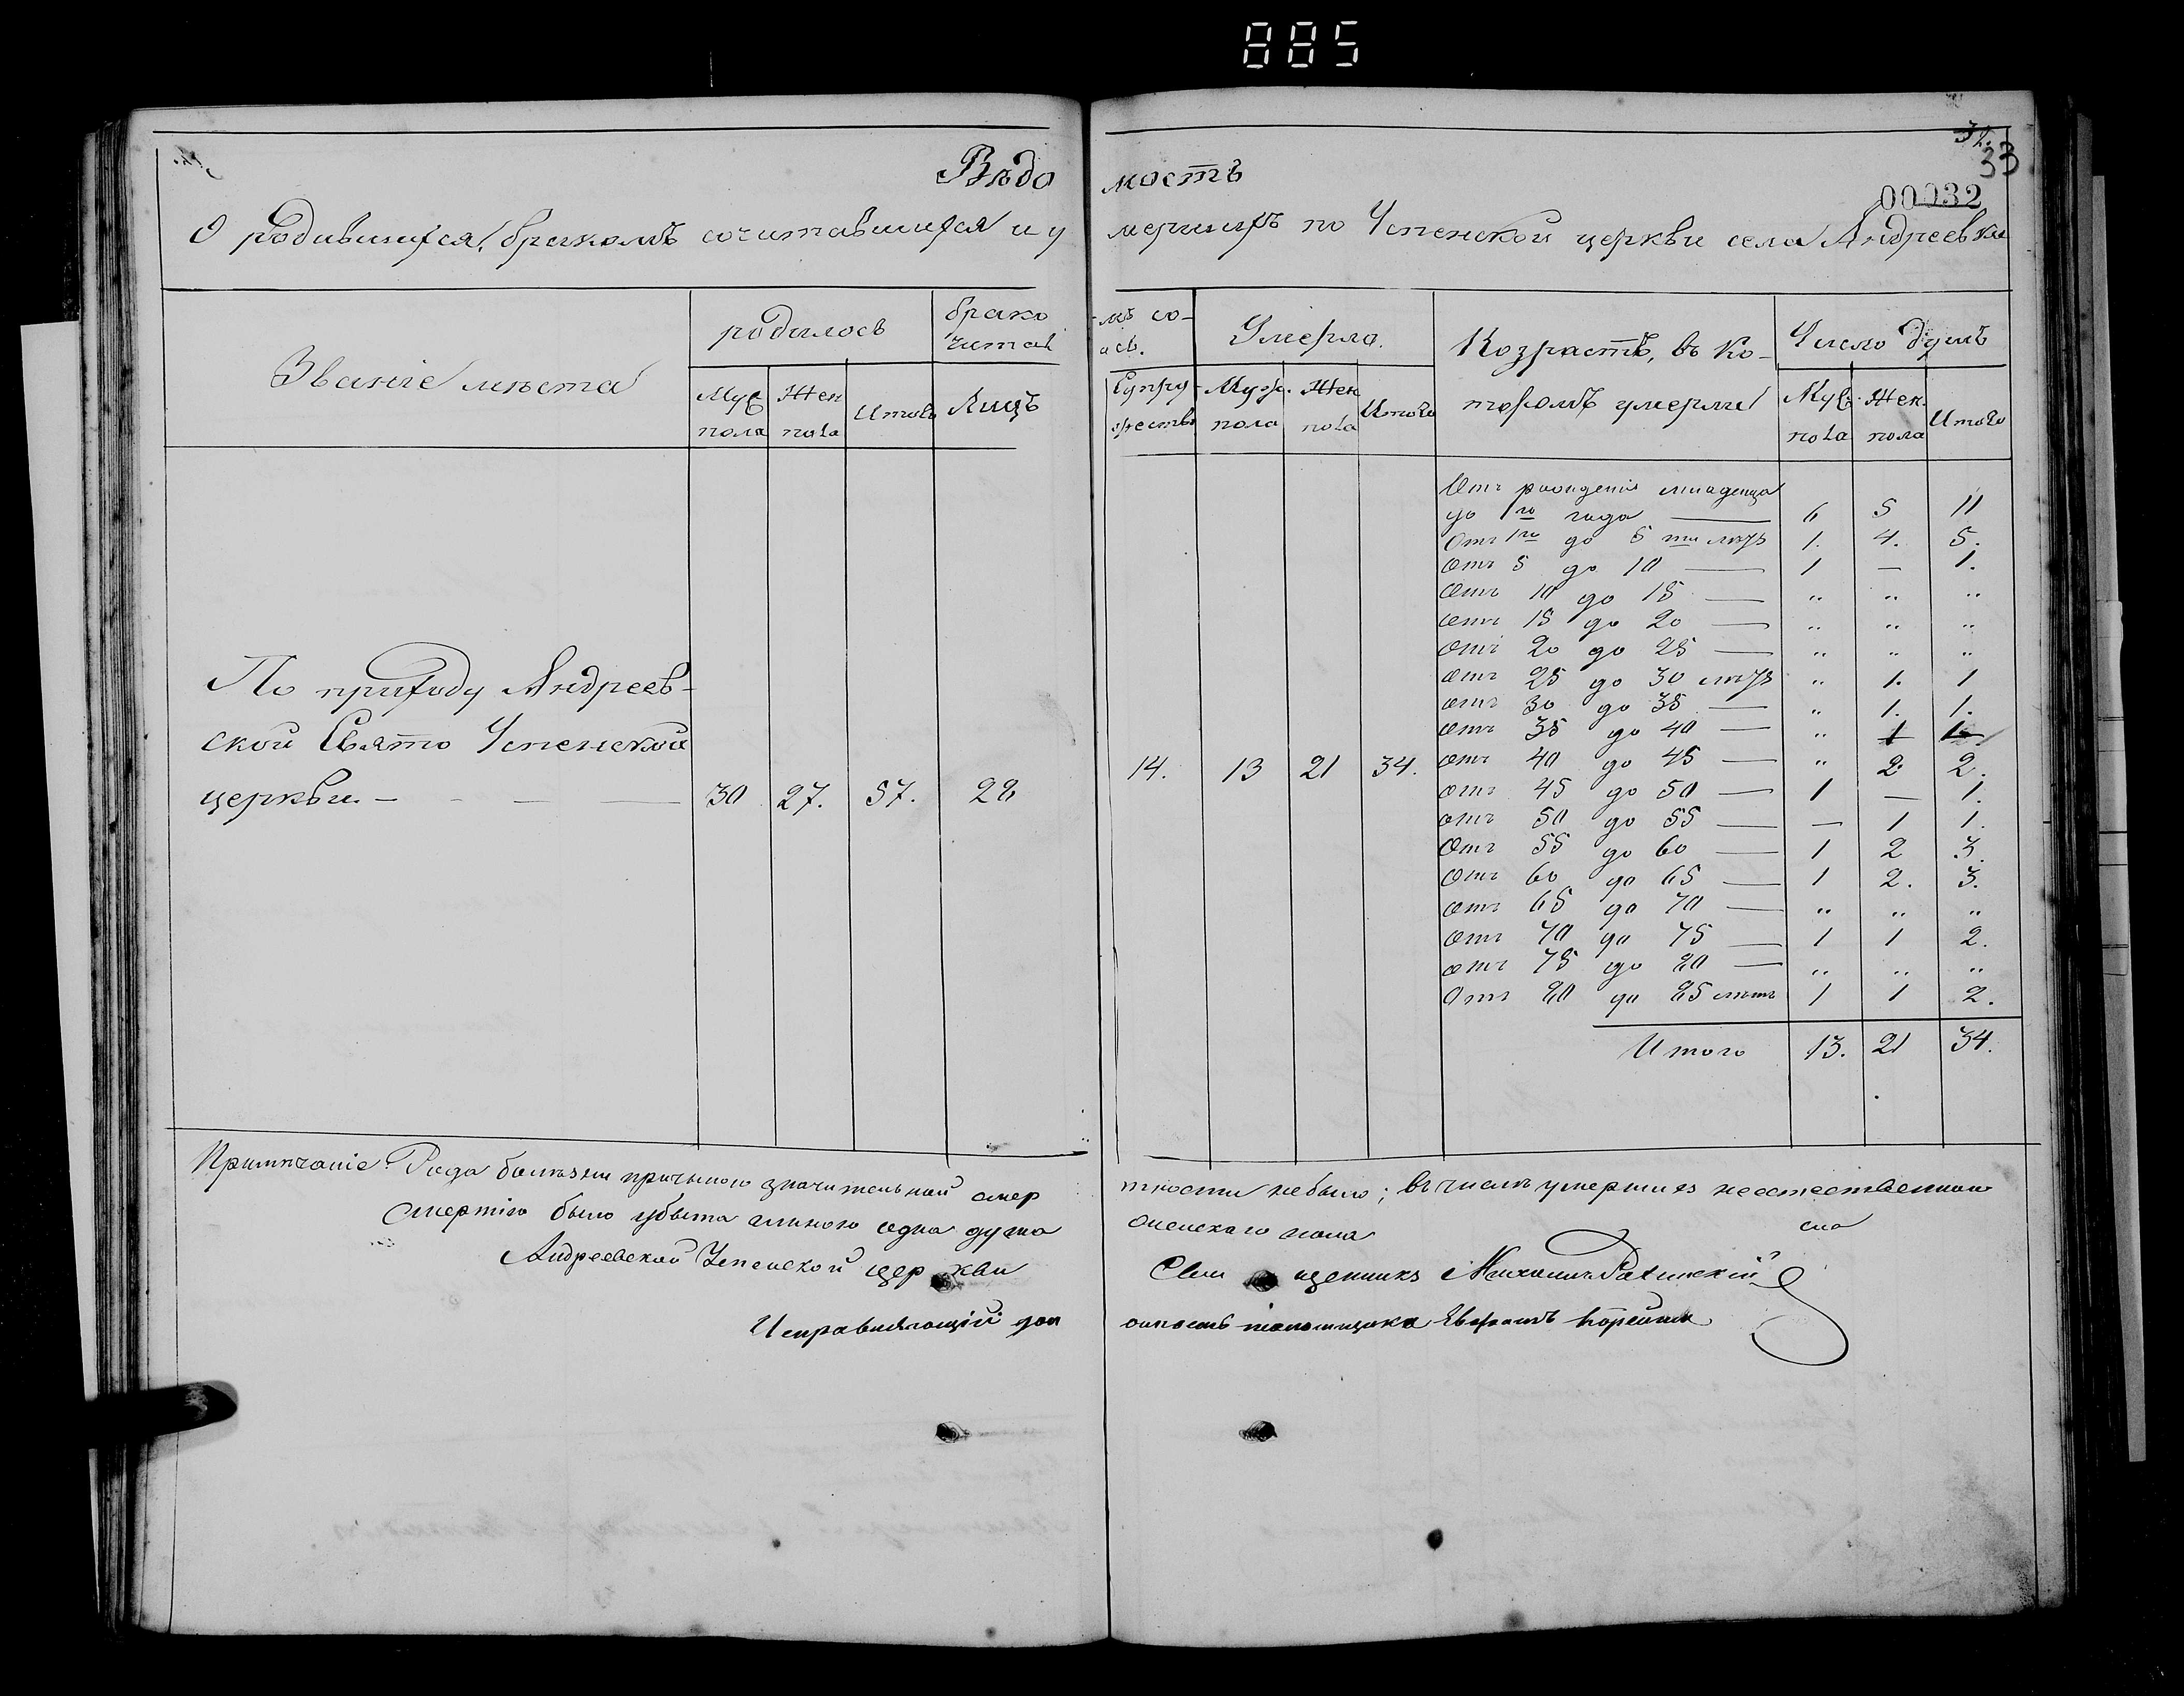 885
32.
33
00032
Вѣдомость
О родившихся, бракомъ сочитавшихся и умершихъ по Успенской церкви села Андреевки
Званіе мѣста
родилось
Муж пола
Жен пола
Итого
бракомъ сочиталось.
Лицъ
Супружествъ
Умерло.
Муж. пола
Жен пола
Итого
Возрастъ, въ которомъ умерли
Число душъ
Муж. пола
Жен. пола
Итого
По приходу Андреев-
ской Свято Успенской
церкви. — 30 27. 57. 28 14. 13 21 34.
Отъ рожденія младенца
до 1го года — 6 5 11
Отъ 1го до 5 ти лѣтъ 1. 4. 5.
отъ 5 до 10 — 1 — 1.
Отъ 10 до 15 — „ „ „
отъ 15 до 20 — „ „ „
отъ 20 до 25 — „ „ „
отъ 25 до 30 лѣтъ „ 1. 1
отъ 30 до 35 — „ 1. 1.
отъ 35 до 40 — „ 1 1
отъ 40 до 45 — „ 2 2.
отъ 45 до 50 — 1 — 1.
отъ 50 до 55 — — 1 1.
Отъ 55 до 60 — 1 2 3.
Отъ 60 до 65 — 1 2. 3.
отъ 65 до 70 — „ „ „
отъ 70 до 75 — 1 1 2.
отъ 75 до 80 — „ „ „
Отъ 80 до 85 лѣтъ 1 1 2.
Итого 13. 21 34.
Примѣчаніе: Рода болѣзни причиною значительной смертности не было; въ числѣ умершихъ неестественною
смертію было убыта одна душа женскаго пола
Андреевской Успенской церкви Священникъ Михаилъ
Исправляющій должность псаломщика